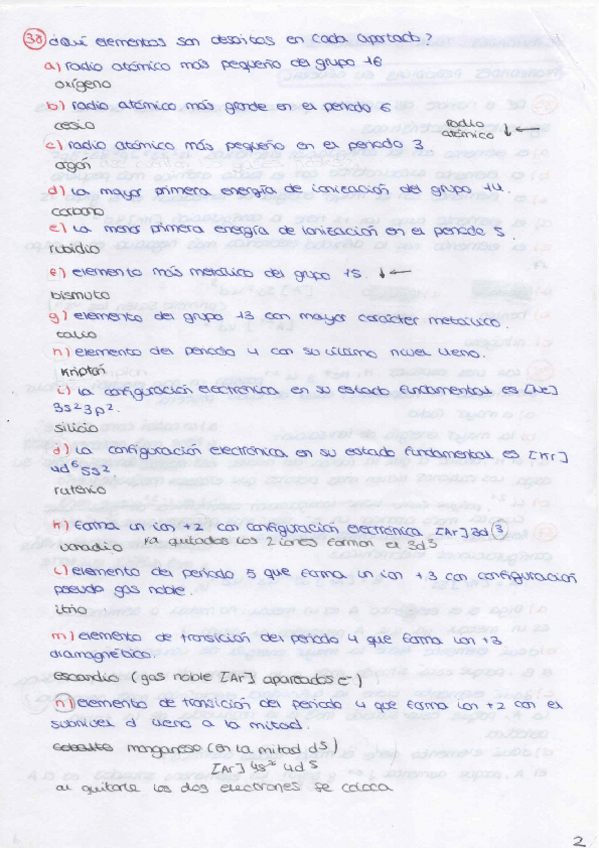 38 ¿Qué elementos son descritos en cada apartado?
a) radio atómico más pequeño del grupo 16
oxígeno
b) radio atómico más grande en el periodo 6
cesio
radio
atómico ↓←
c) radio atómico más pequeño en el periodo 3
argón
d) La mayor primera energía de ionización del grupo 14.
carbono
e) La menor primera energía de ionización en el periodo 5.
rubidio
f) elemento más metálico del grupo 15. ↓←
bismuto
g) elemento del grupo 13 con mayor carácter metálico.
talio
h) elemento del periodo 4 con su último nivel lleno.
kriptón
i) La configuración electrónica en su estado fundamental es [Ne]
3s² 3p².
silicio
j) La configuración electrónica en su estado fundamental es [Kr]
4d⁶ 5s²
rutenio
k) Forma un ion +2 con configuración electrónica [Ar] 3d³
vanadio ya quitados los 2 iones forman el 3d³
l) elemento del periodo 5 que forma un ion +3 con configuración
pseudo gas noble.
itrio
m) elemento de transición del periodo 4 que forma ion +3
diamagnético.
escandio (gas noble [Ar] apareados e⁻)
n) elemento de transición del periodo 4 que forma ion +2 con el
subnivel d lleno a la mitad.
manganeso (en la mitad d5)
[Ar] 4s² 4d⁵
al quitarle los dos electrones se coloca
2